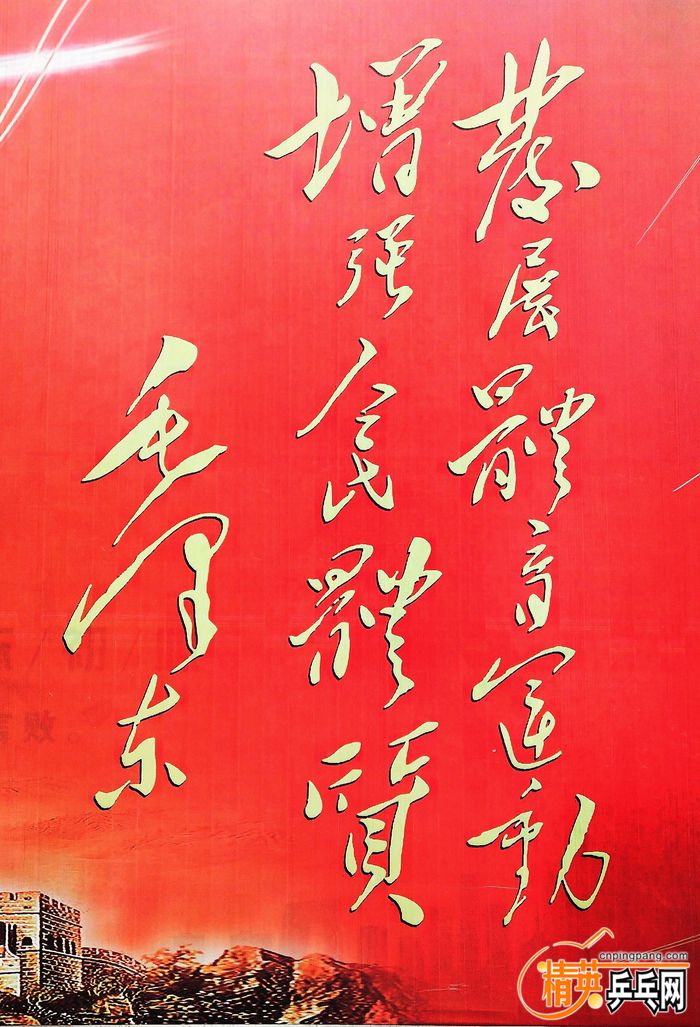 發展體育運動
增强人民體質
毛泽东
败。
cnpingpang.com
精英乒乓网